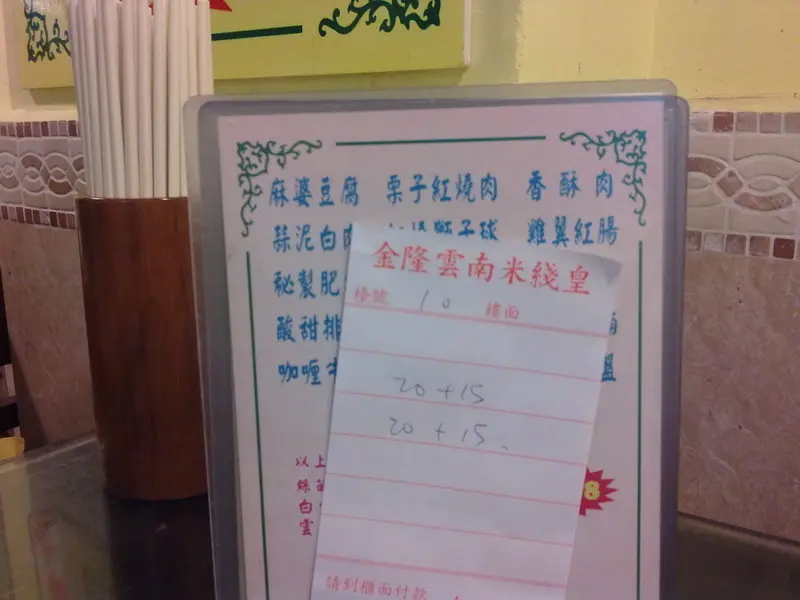 麻婆豆腐 栗子紅燒肉 香酥肉
蒜泥白肉 獅子球 雞翼紅腸
秘製肥
酸甜排
咖喱牛
以上
絲苗
白
雲
8
金隆雲南米綫皇
檯號 10 樓面
20+15
20+15
請到櫃面付款